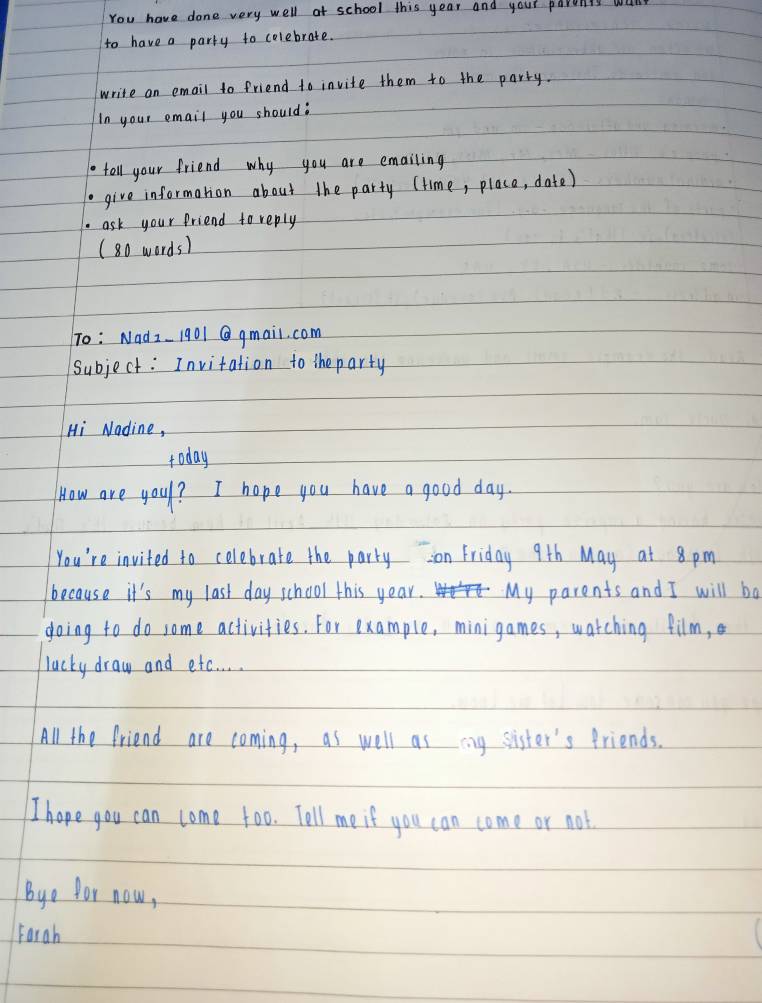 You have done very well at school this year and your parents want
to have a party to celebrate.
Write an email to friend to invite them to the party.
In your email you should:
• tell your friend why you are emailing
• give information about the party (time, place, date)
• ask your friend to reply
(80 words)
To: Nadz_1901@gmail.com
Subject: Invitation to the party
Hi Nadine,
today
How are you? I hope you have a good day.
You're invited to celebrate the party on Friday 9th May at 8 pm
because it's my last day school this year. We're My parents and I will be
going to do some activities. For example, mini games, watching film,
lucky draw and etc....
All the friend are coming, as well as my sister's friends.
I hope you can come too. Tell me if you can come or not.
Bye for now,
Farah